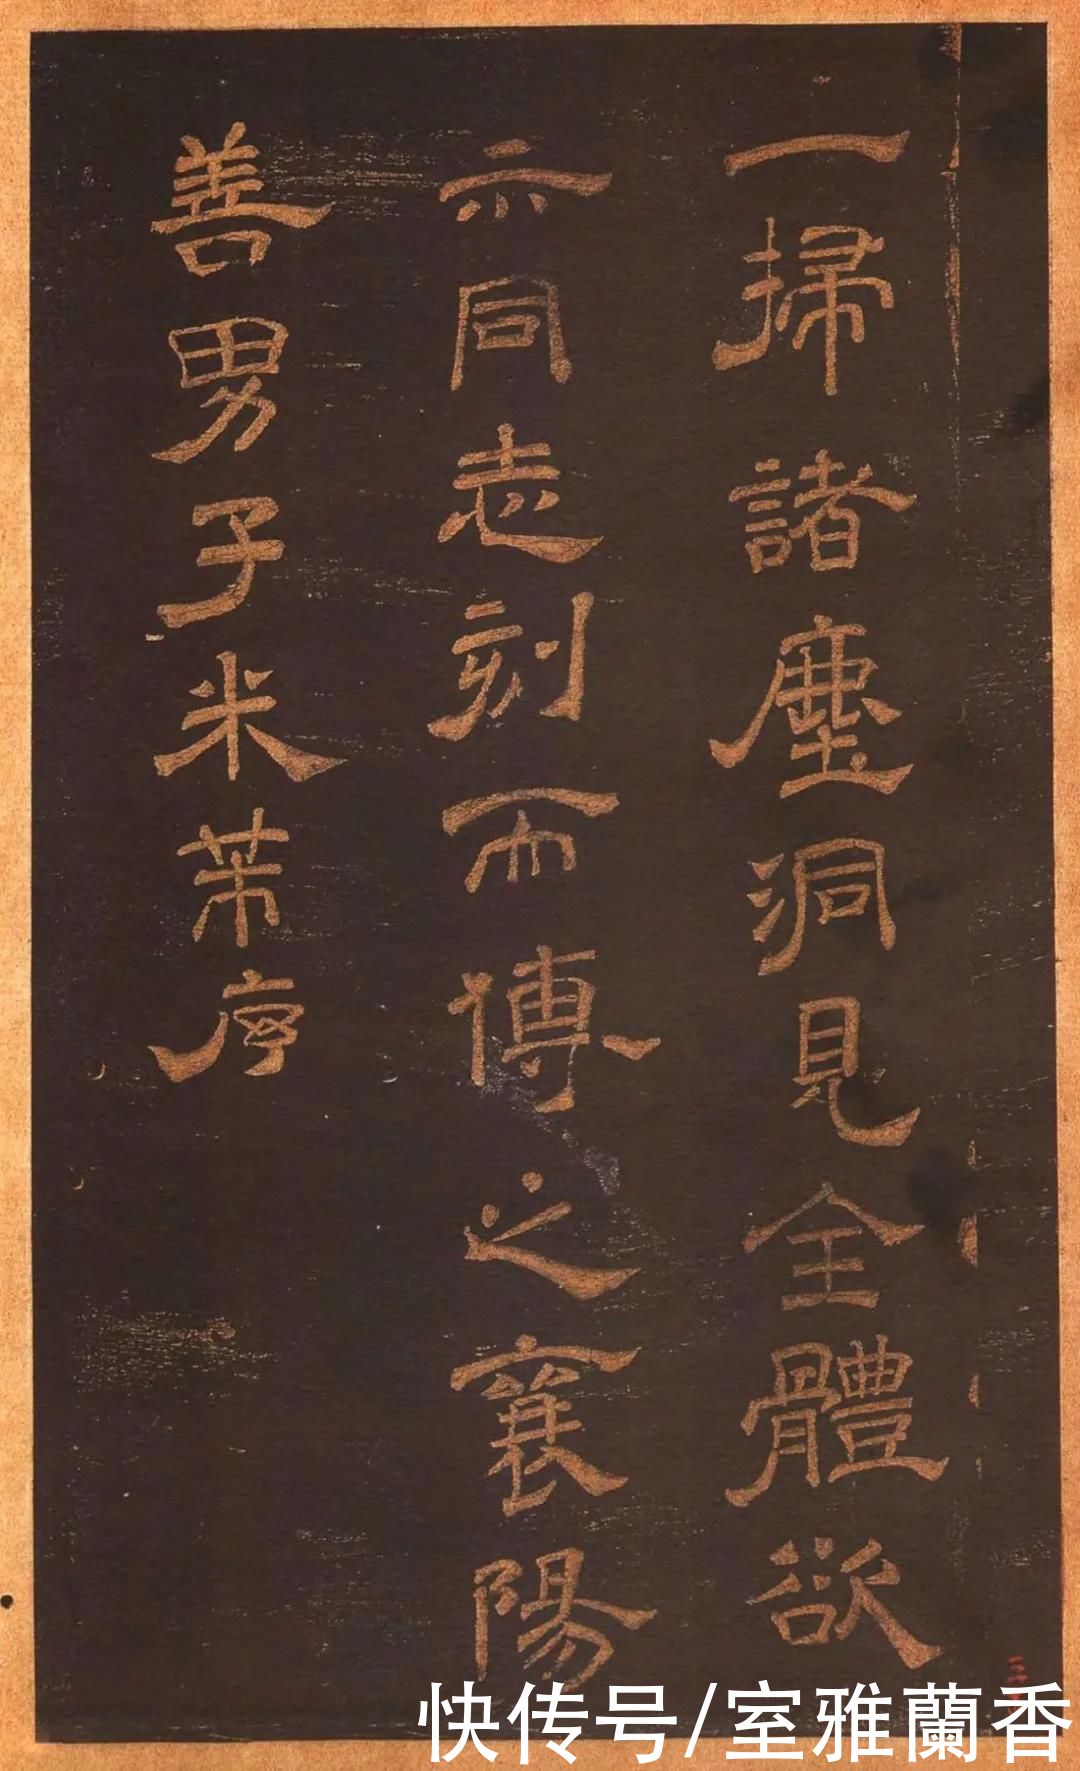 一掃諸塵洞見全體欲
示同志刻而博之襄陽
善男子米芾序
三
快传号/室雅蘭香